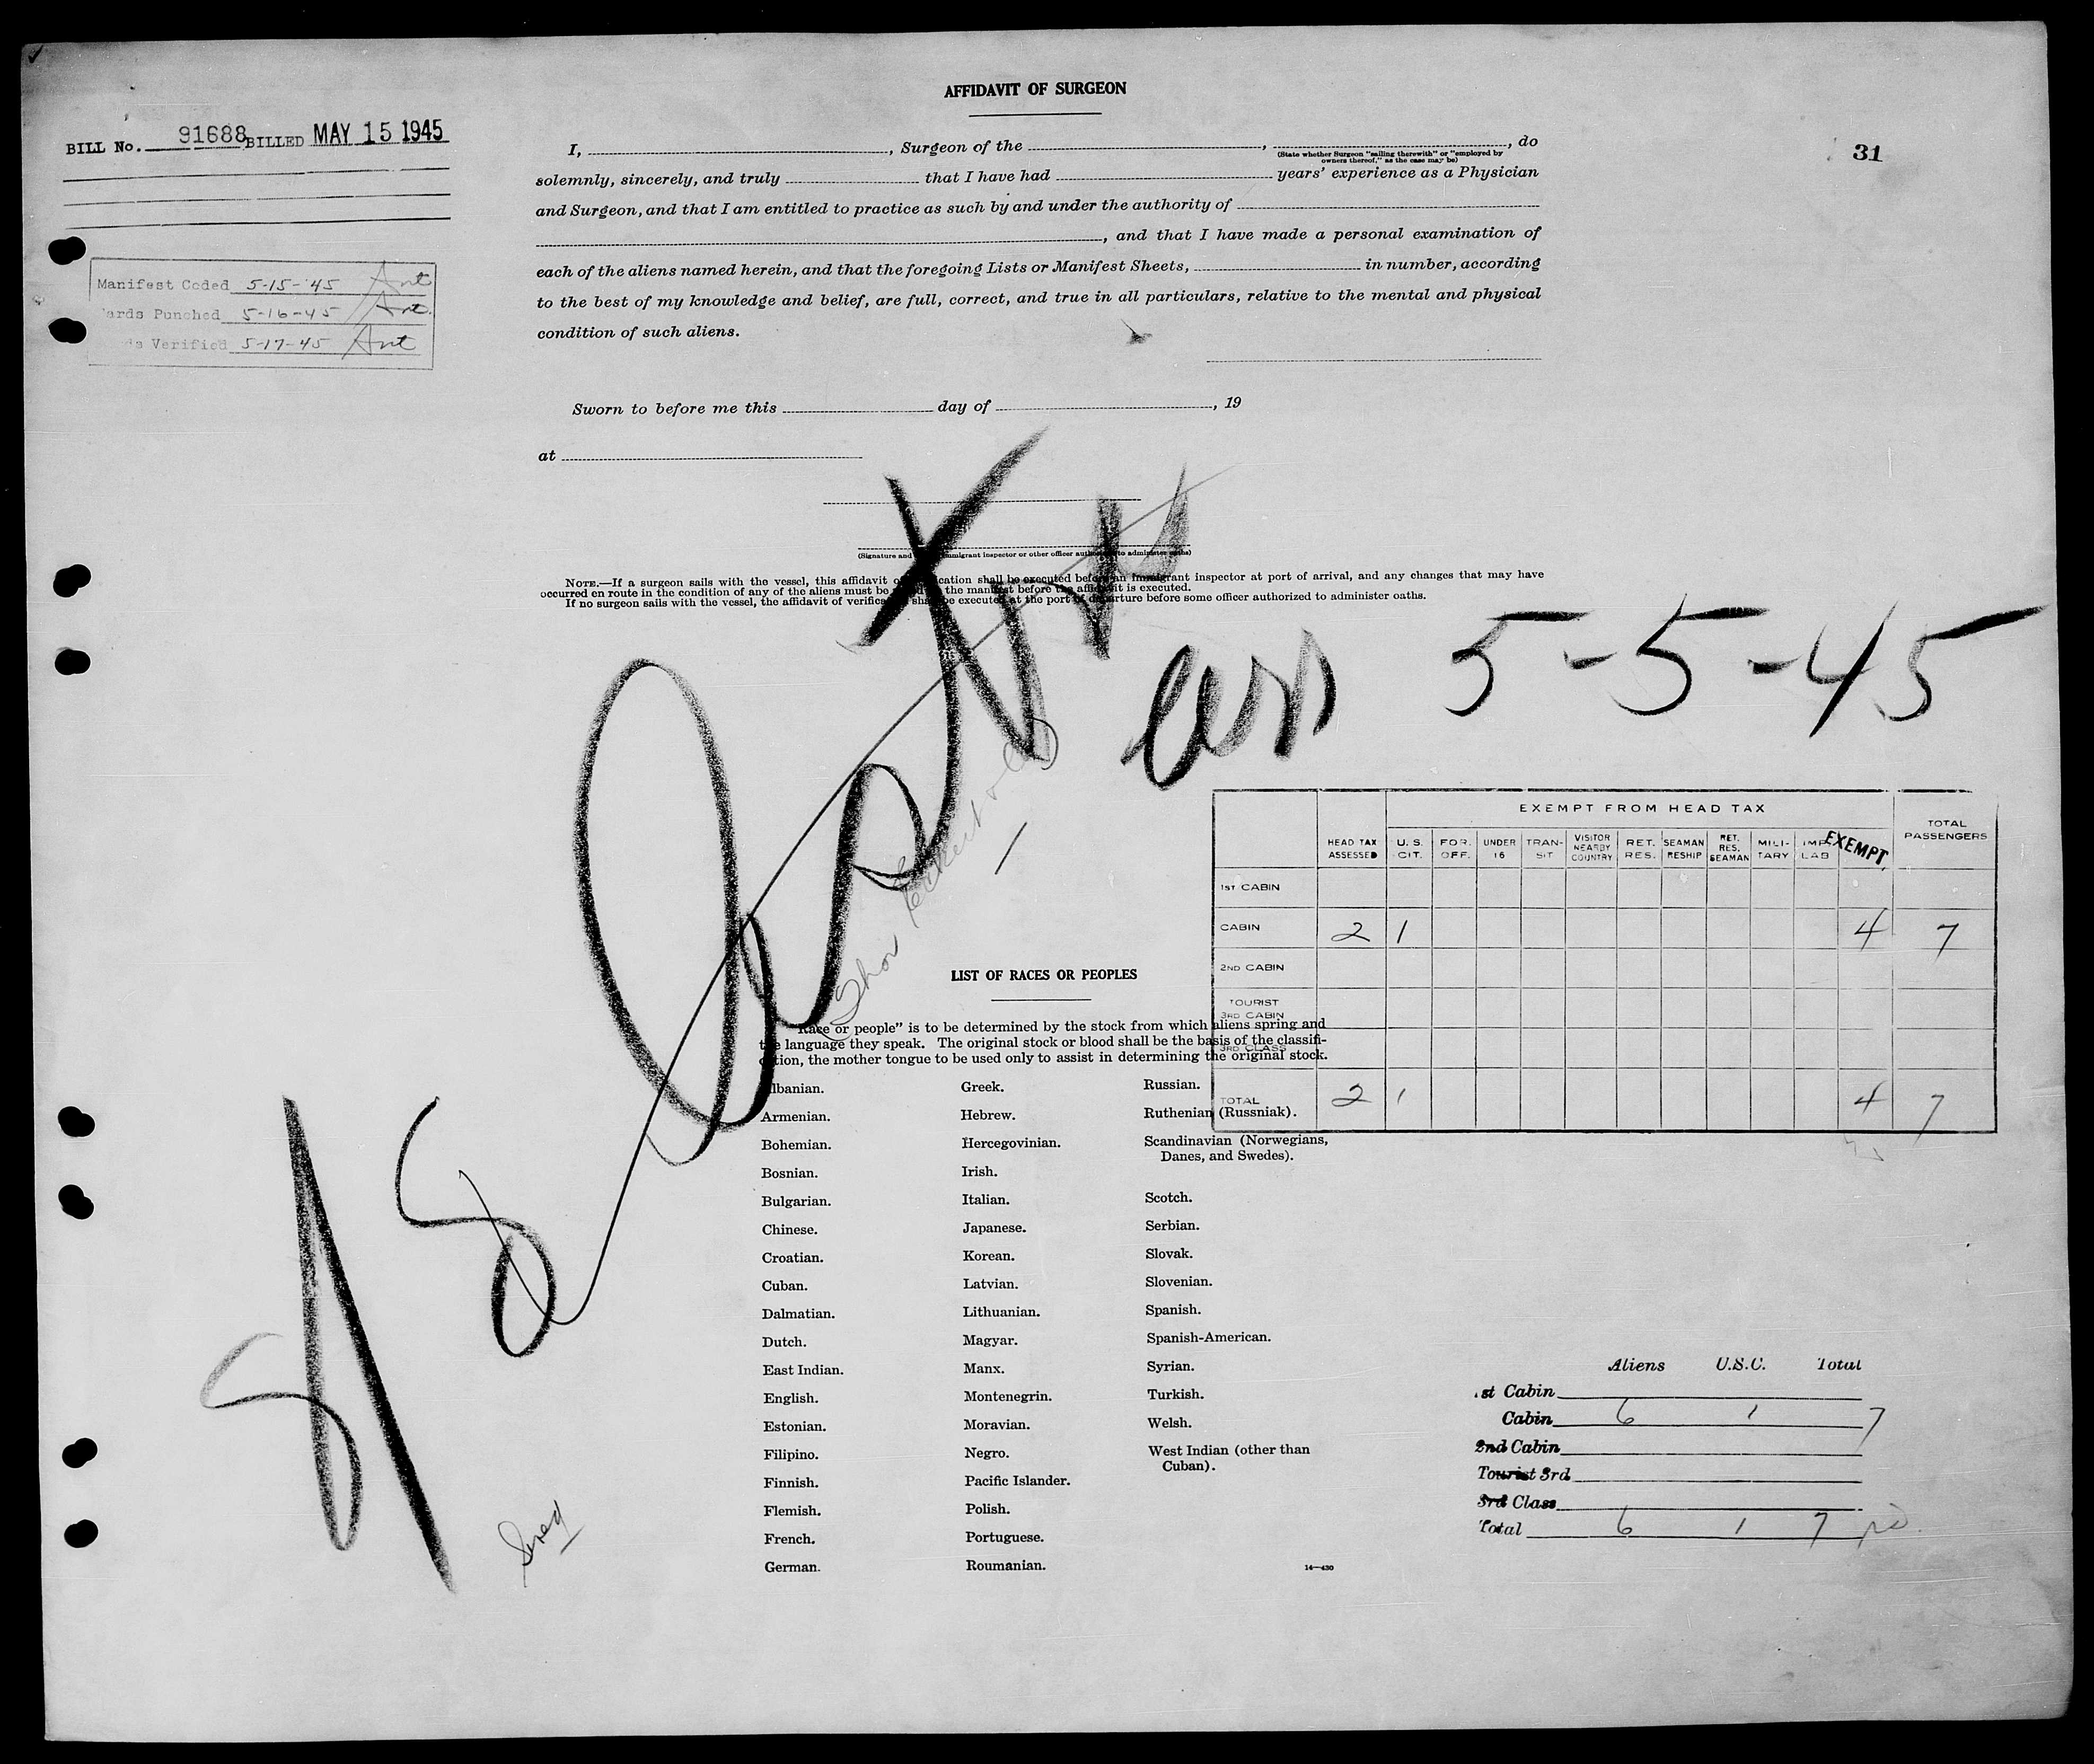 AFFIDAVIT OF SURGEON
31
BILL No. 91688 BILLED MAY 15 1945
I, , Surgeon of the , , do
(State whether Surgeon "sailing therewith" or "employed by owners thereof," as the case may be)
solemnly, sincerely, and truly that I have had years' experience as a Physician
and Surgeon, and that I am entitled to practice as such by and under the authority of
, and that I have made a personal examination of
each of the aliens named herein, and that the foregoing Lists or Manifest Sheets, in number, according
to the best of my knowledge and belief, are full, correct, and true in all particulars, relative to the mental and physical
condition of such aliens.
Manifest Coded 5-15-'45
Punched 5-16-45
Verified 5-17-45
Sworn to before me this day of , 19
at
(Signature and immigrant inspector or other officer to administer oaths)
NOTE.—If a surgeon sails with the vessel, this affidavit shall be executed before an immigrant inspector at port of arrival, and any changes that may have
occurred en route in the condition of any of the aliens must be the manifest before the affidavit is executed.
If no surgeon sails with the vessel, the affidavit of shall be executed at the port of departure before some officer authorized to administer oaths.
5-5-45
EXEMPT FROM HEAD TAX
HEAD TAX ASSESSED U. S. CIT. FOR. OFF. UNDER 16 TRANSIT VISITOR NEARBY COUNTRY RET. RES. SEAMAN RESHIP RET. RES. SEAMAN MILITARY IMP LAB EXEMPT TOTAL PASSENGERS
1ST CABIN
CABIN 2 1 4 7
2ND CABIN
TOURIST 3RD CABIN
3RD CLASS
TOTAL 2 1 4 7
LIST OF RACES OR PEOPLES
"Race or people" is to be determined by the stock from which aliens spring and
the language they speak. The original stock or blood shall be the basis of the classifi-
cation, the mother tongue to be used only to assist in determining the original stock.
Albanian.
Armenian.
Bohemian.
Bosnian.
Bulgarian.
Chinese.
Croatian.
Cuban.
Dalmatian.
Dutch.
East Indian.
English.
Estonian.
Filipino.
Finnish.
Flemish.
French.
German.
Greek.
Hebrew.
Hercegovinian.
Irish.
Italian.
Japanese.
Korean.
Latvian.
Lithuanian.
Magyar.
Manx.
Montenegrin.
Moravian.
Negro.
Pacific Islander.
Polish.
Portuguese.
Roumanian.
Russian.
Ruthenian (Russniak).
Scandinavian (Norwegians,
Danes, and Swedes).
Scotch.
Serbian.
Slovak.
Slovenian.
Spanish.
Spanish-American.
Syrian.
Turkish.
Welsh.
West Indian (other than
Cuban).
14—430
Aliens U.S.C. Total
1st Cabin
Cabin 6 1 7
2nd Cabin
Tourist 3rd
3rd Class
Total 6 1 7